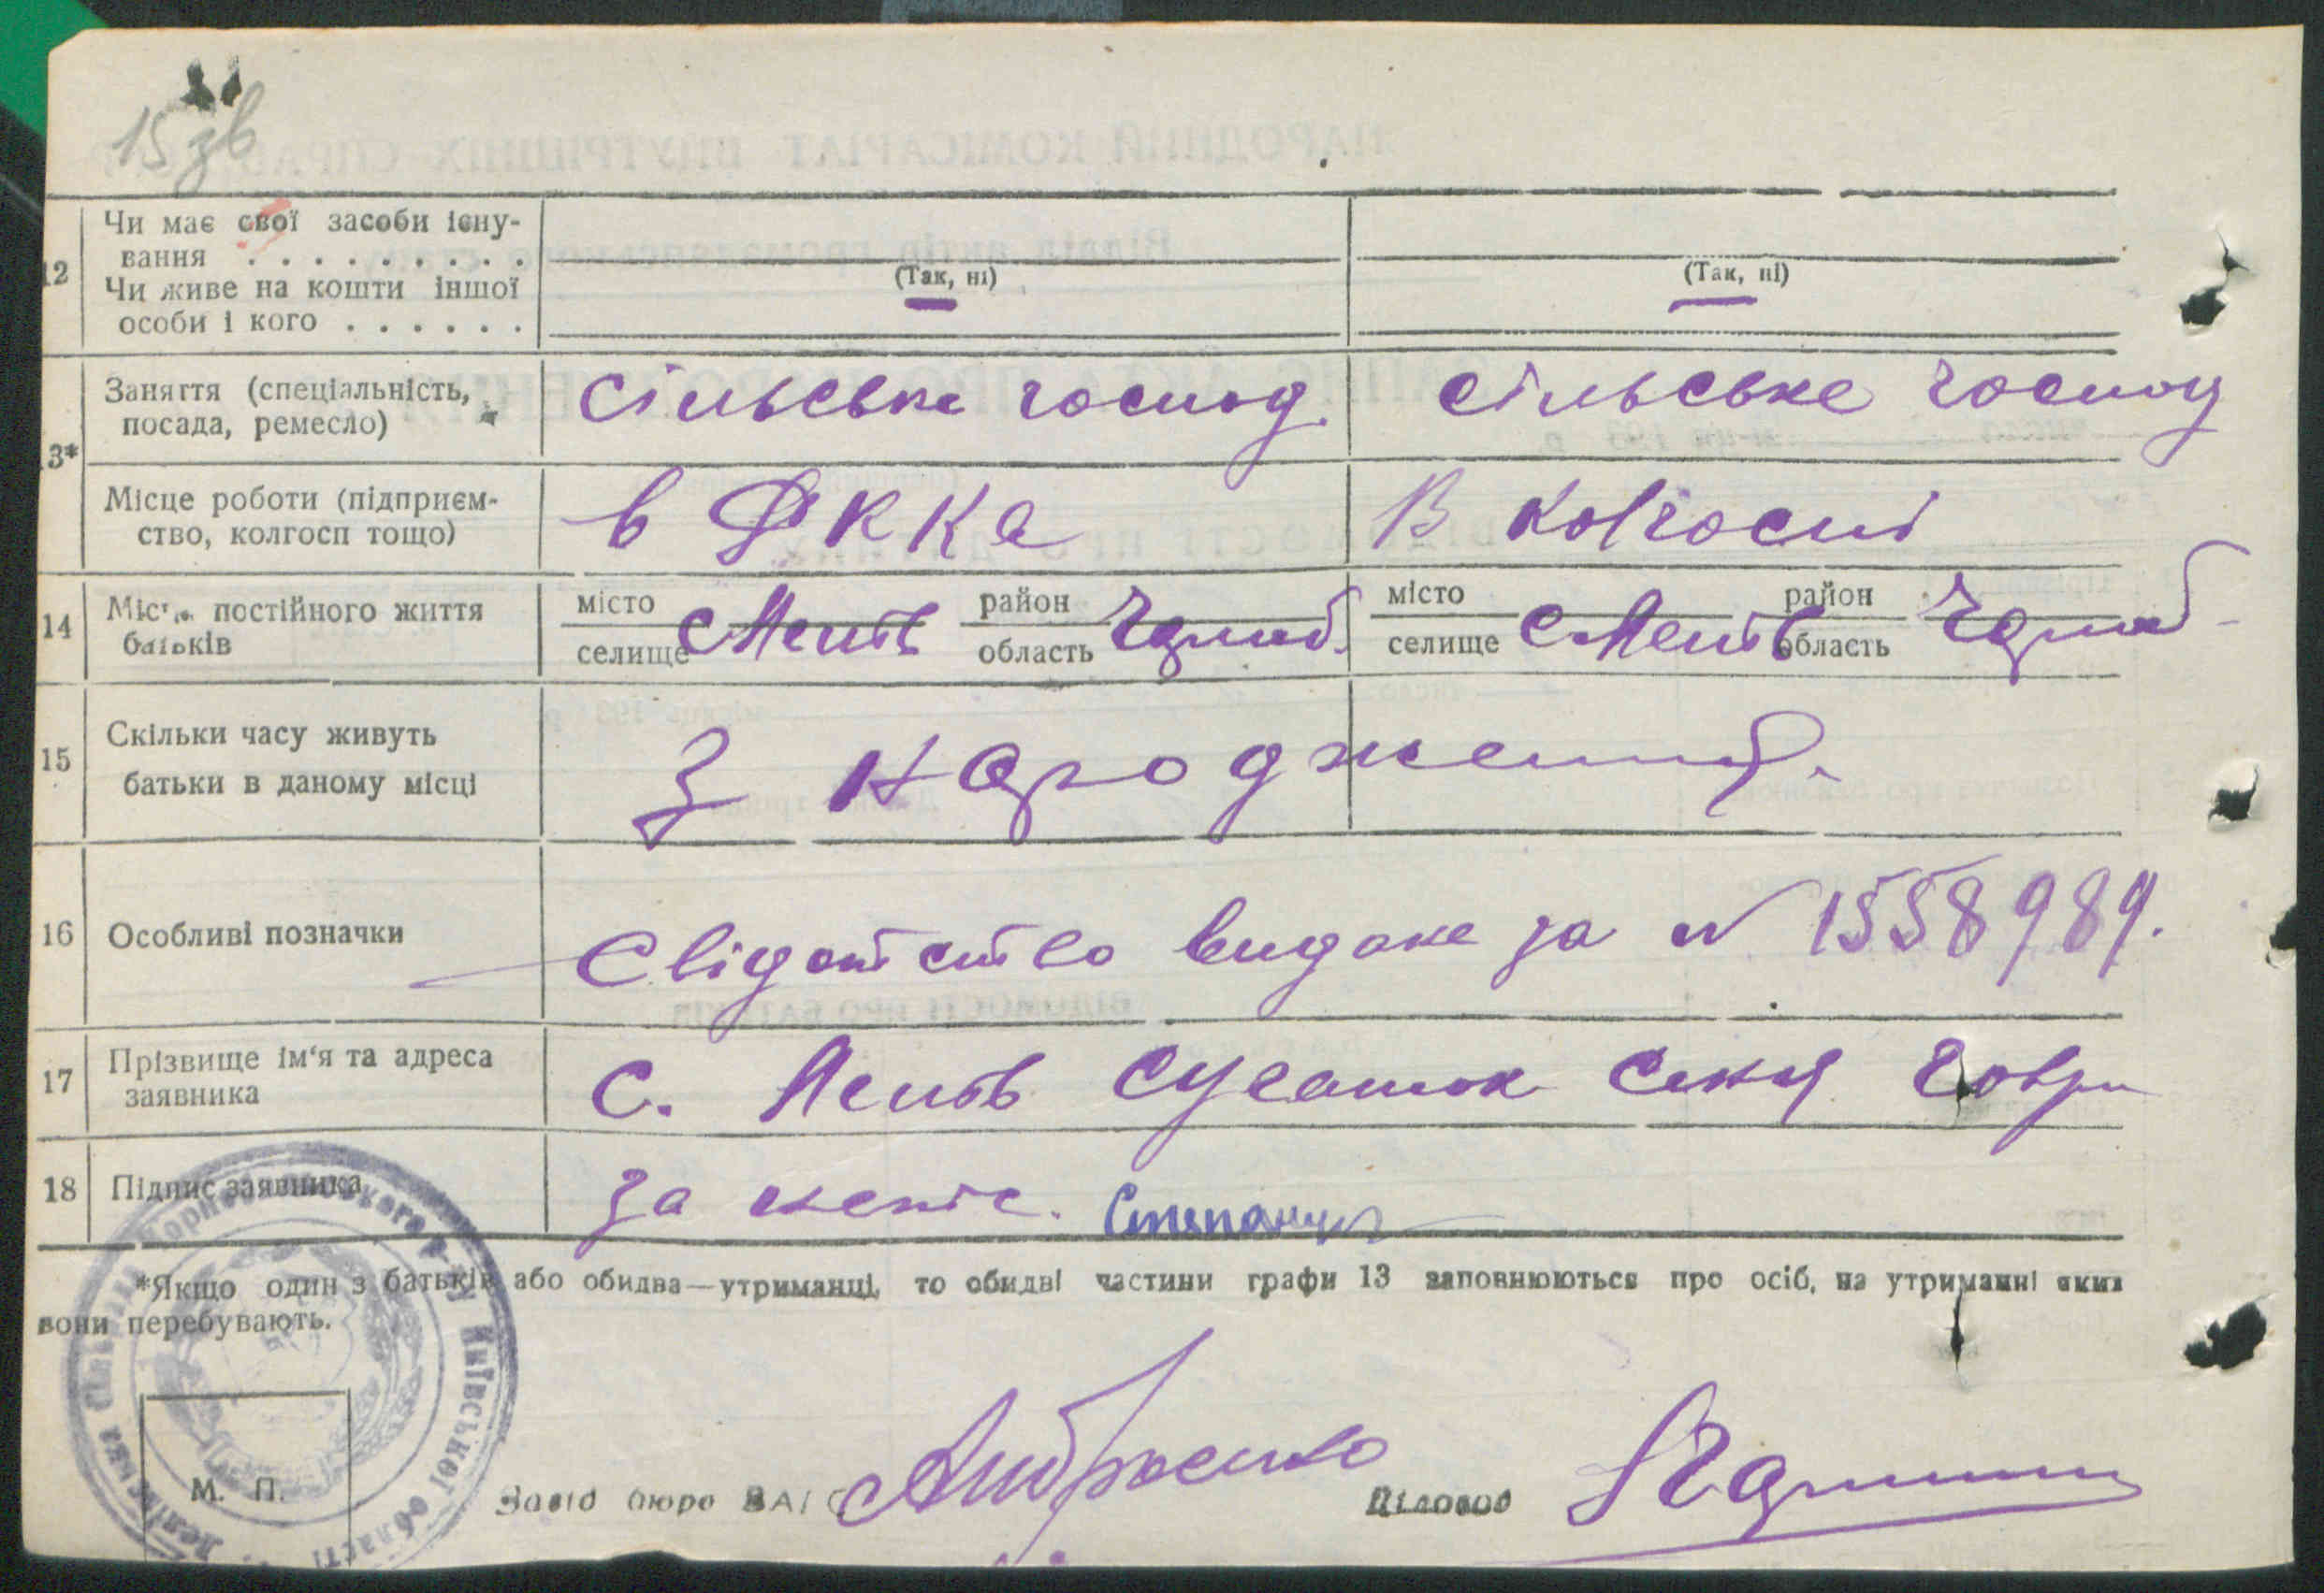 15 зв
12 Чи має свої засоби існу-
вання . . . . . . . . . .
(Так, ні) (Так, ні)
Чи живе на кошти іншої
особи і кого . . . . . .
13* Заняття (спеціальність,
посада, ремесло)
сільське господ. сільське господ
Місце роботи (підприєм-
ство, колгосп тощо)
в РККА В колгоспі
14 Місце постійного життя
батьків
місто район місто район
селище область селище область
15 Скільки часу живуть
батьки в даному місці
З народження.
16 Особливі позначки
Свідоцтво видане за № 1558989.
17 Прізвище ім'я та адреса
заявника
с.
18 Підпис заявника
За непис.
*Якщо один з батьків або обидва—утриманці, то обидві частини графи 13 заповнюються про осіб, на утриманні яких
вони перебувають.
М. П.
Завід бюро ЗАГС Діловод
Київської області